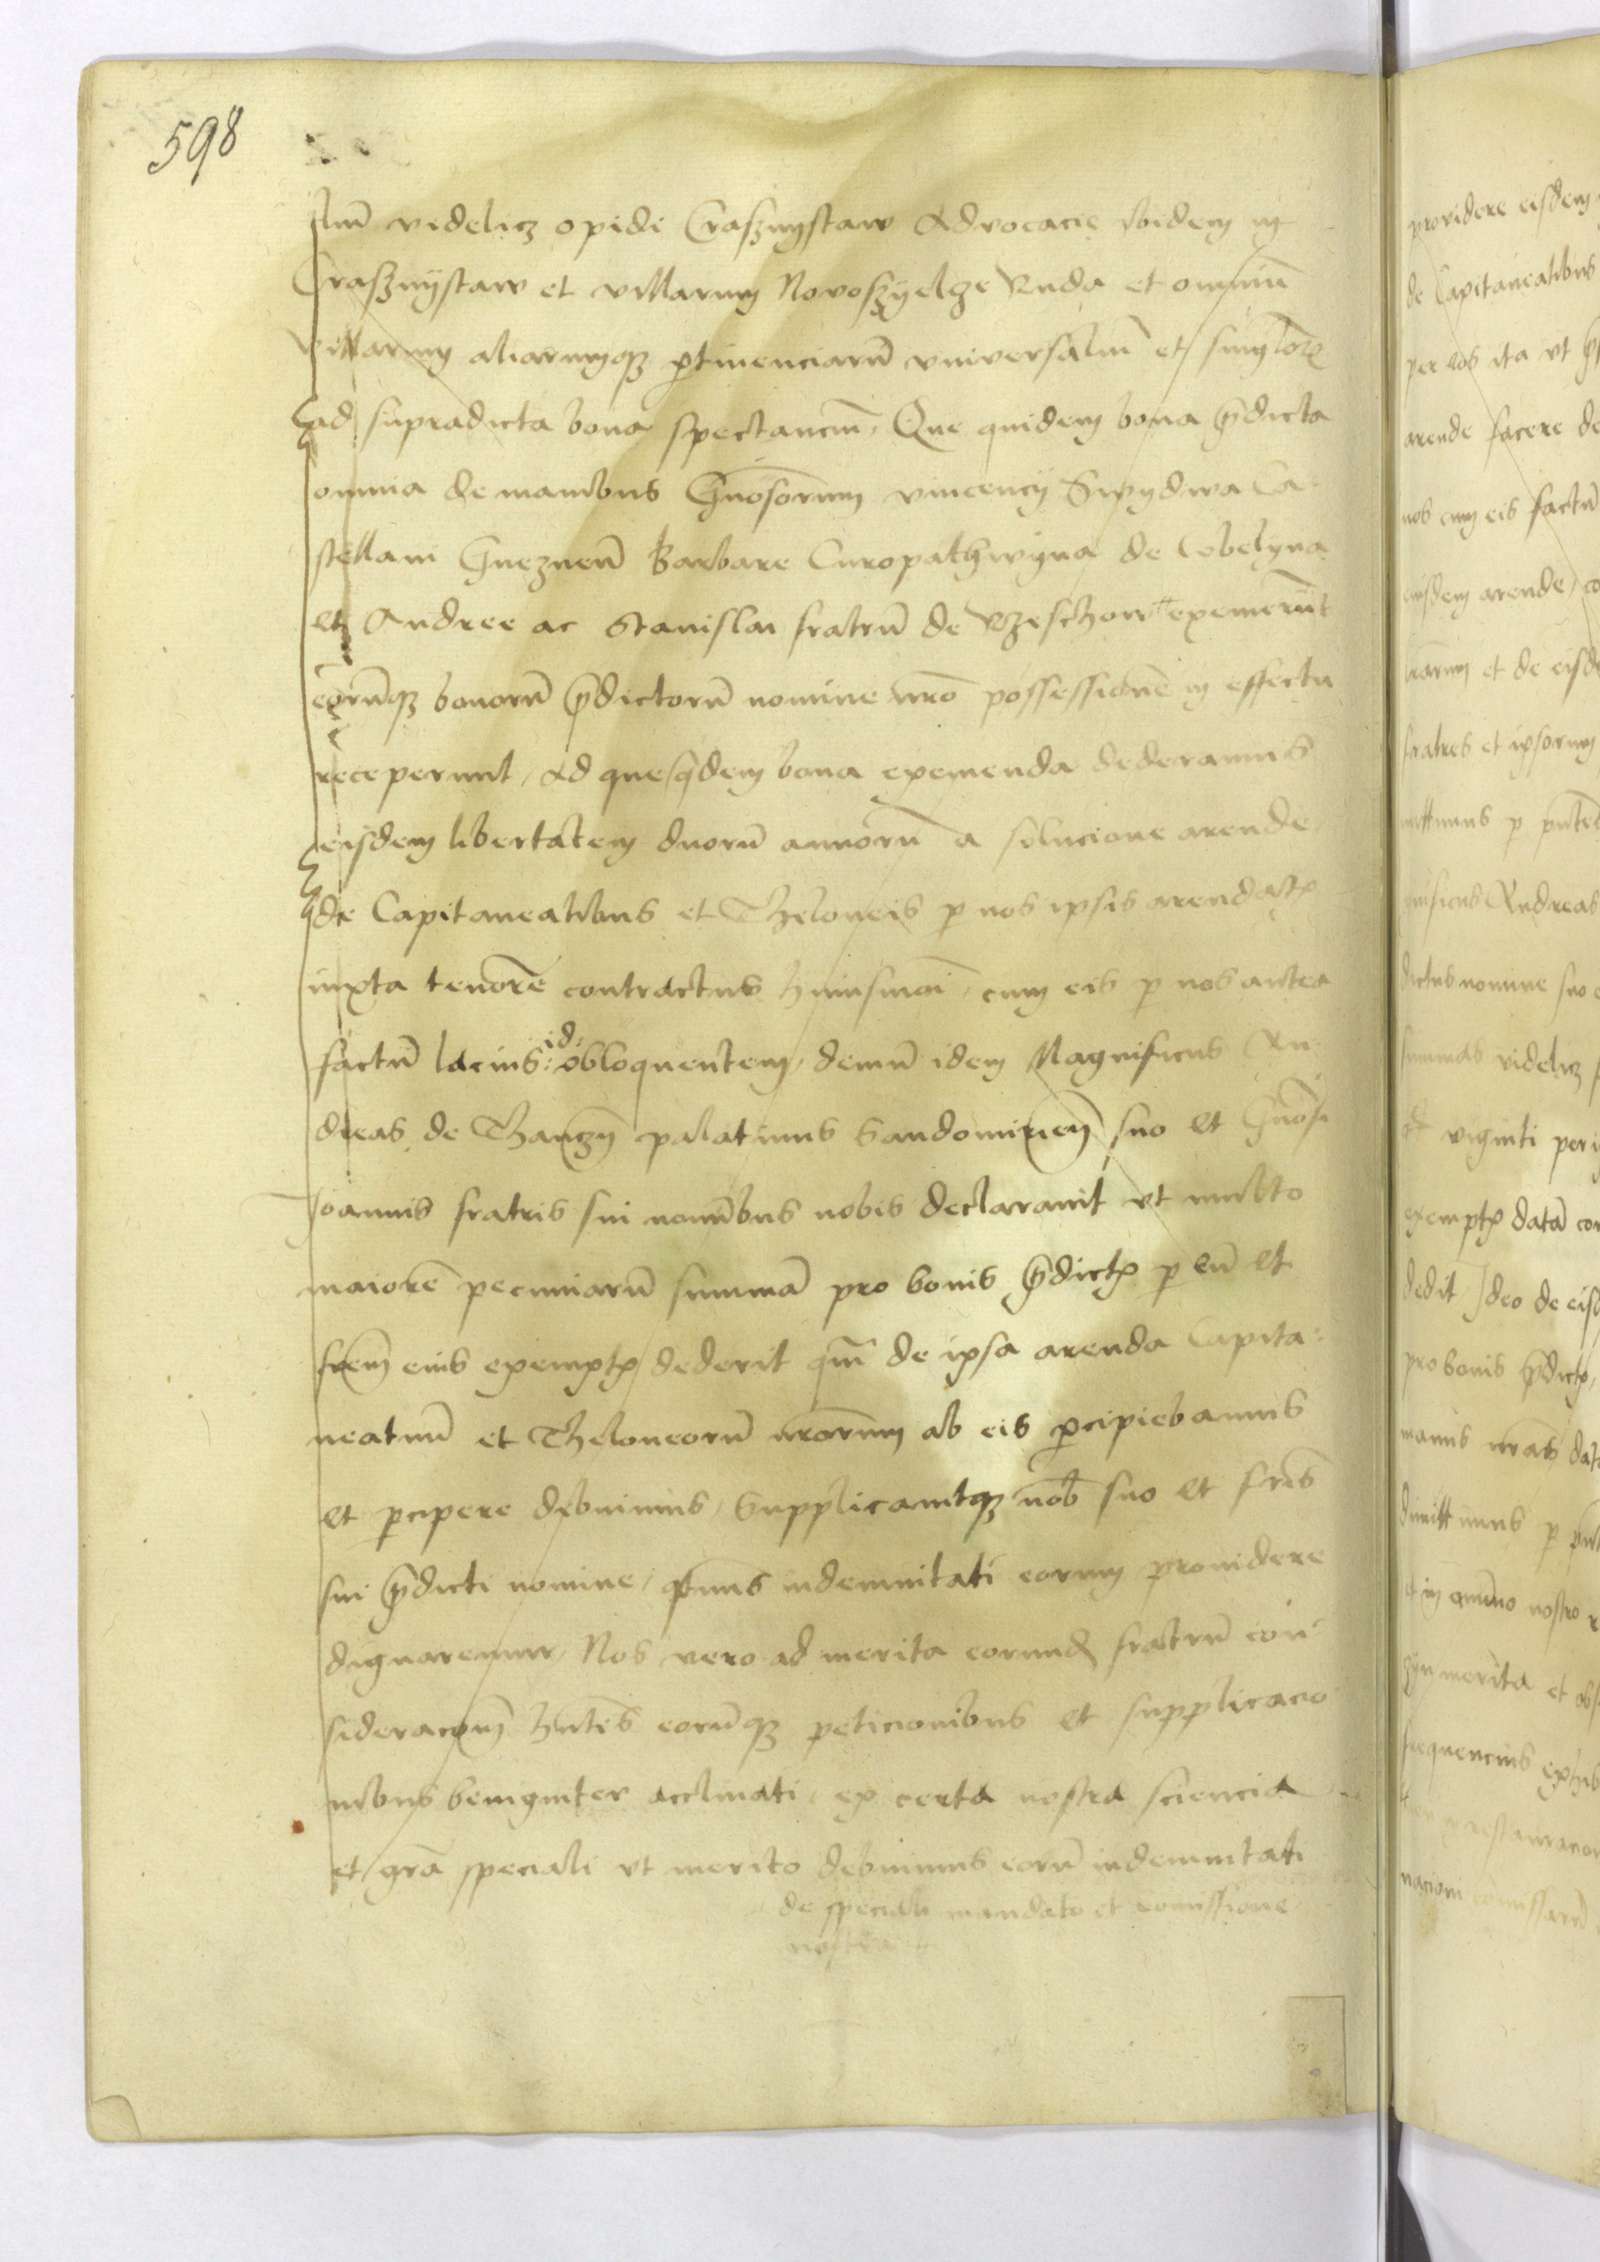 598
lium videlicz opidi Crasznystaw Advocacie ibidem in
Crasznystaw et villarum Novoszyelge Ruda et omnium
villarum aliarumqz ptinenciarum vniversalium et singlorum
ad supradicta bona spectancium, Que quidem bona pdicta
omnia de manibus Gnosorum vincencij Swydwa Ca-
stellani Gneznen Barbare Curopathwyna de Cobelyna
et Andree ac Stanislai fratrum de Rzeschow exemerunt
eorumqz bonorum pdictorum nomine nro possessionem in effectu
receperunt, Ad que qdem bona exemenda dederamus
eisdem libertatem duorum annorum a solucione arende
de Capitaneatibus et Theloneis p nos ipsis arendatis
iuxta tenorem contractus huiusmoi, cum eis p nos antea
factum lacius id obloquentem, demum idem Magnificus An-
dreas de Thanczyn palatinus Sandomirien suo et Gnosi
Joannis fratris sui nominibus nobis declaravit vt multo
maiorem pecuniarum summam pro bonis pdictis p eum et
frem eius exemptis dederit qm de ipsa arenda Capita-
neatuum et Theloneorum nrorum ab eis pcipiebamus
et pcipere debuimus, Supplicavitqz nob suo et fris
sui pdicti nomine, qtinus indemnitati eorum providere
dignaremur, Nos vero ad merita eorund fratrum con-
sideracom hntes eorumqz peticionibus et supplicacio-
nibus benigniter acclinati, ex certa nostra sciencia
et gra speciali vt merito debuimus eorum indemnitati
de speciali mandato et comissione
nostra
providere eisdem
de Capitaneatibus
per eos ita vt
arende facere de
nos cum eis factum
eiusdem arende, co
et de eisde
fratres et ipsorum
Andreas
dictus nomine suo
summas videlicz
viginti peri
exemptis datam con
dedit Ideo de eisd
pro bonis pdictis,
manus nras dat
et in animo nostro
merita et obs